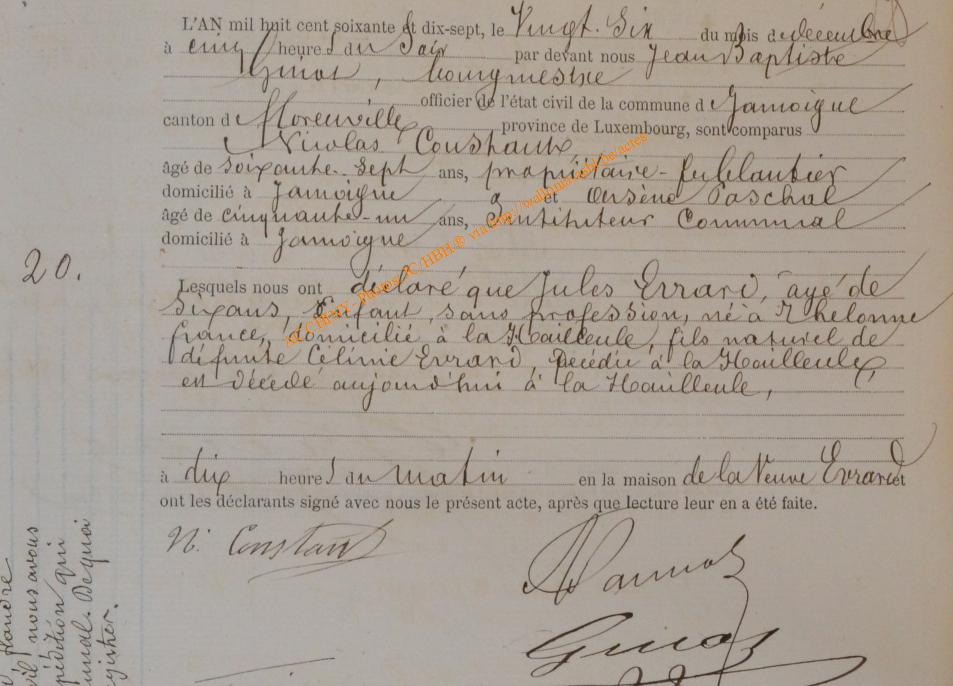 L'AN mil huit cent soixante et dix-sept, le Vingt-Six du mois de decembre
à cinq heures du Soir par devant nous Jean Baptiste
bourgmestre
officier de l'état civil de la commune d Jamoigne
canton d florenville province de Luxembourg, sont comparus
Nicolas Constant
âgé de soixante-sept ans, propriétaire-
domicilié à Jamoigne et Arsène Paschal
âgé de cinquante-un ans, Instituteur Communal
domicilié à Jamoigne
20.
Lesquels nous ont déclaré que Jules Errard, âgé de
Sixans, Enfant, sans profession, né à Thelonne
france, domicilié à la Hailleule, fils naturel de
défunte Célinie Errard, décédée à la Hailleule,
est décédé aujourd'hui à la Hailleule,
à dix heures du matin en la maison de la Veuve Errard et
ont les déclarants signé avec nous le présent acte, après que lecture leur en a été faite.
N. Constant
nous avons
qui
ALCHIMY - Photos JC/HBH® via http://wallonia-asbl.be/actes